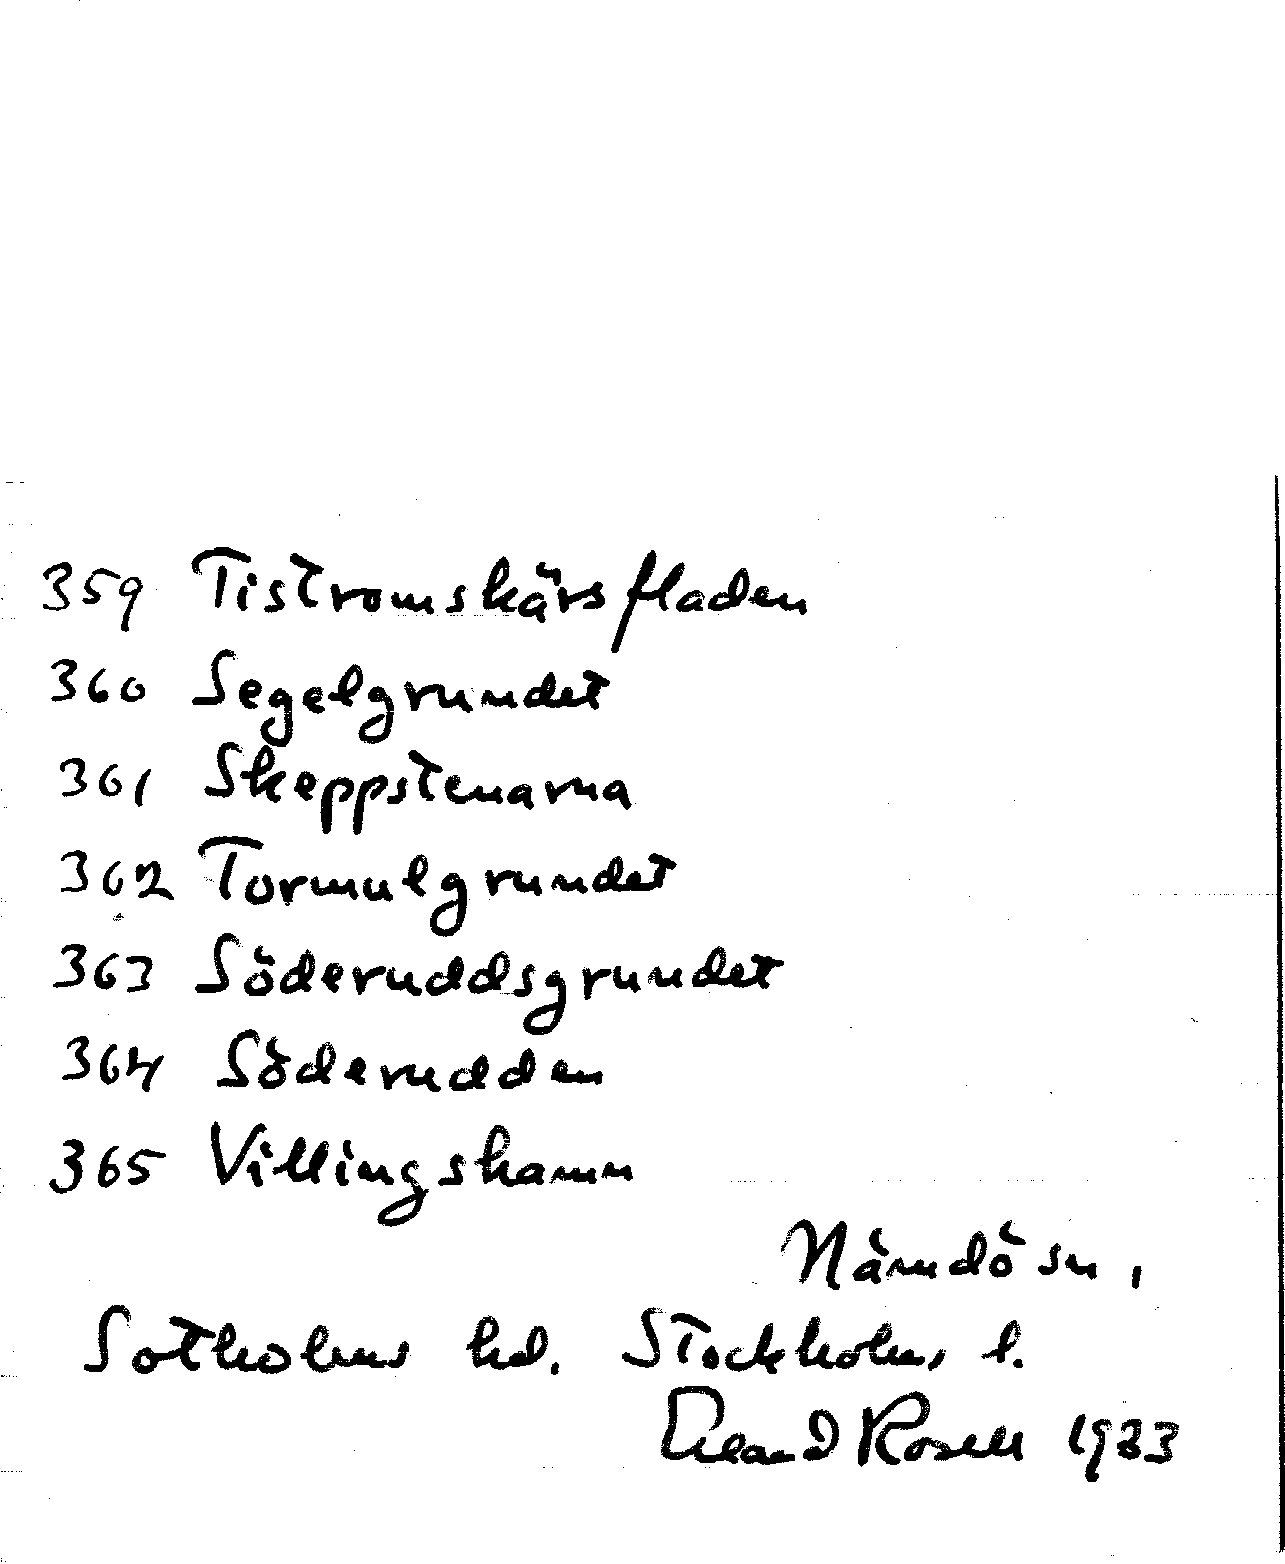 359 Tistromskärsfladen
360 Segelgrundet
361 Skeppstenarna
362 Tormulgrundet
363 Söderuddsgrundet
364 Söderudden
365 Villingshamn
Nämdö sn,
Sotholms hd. Stockholms l.
Rosell 1933